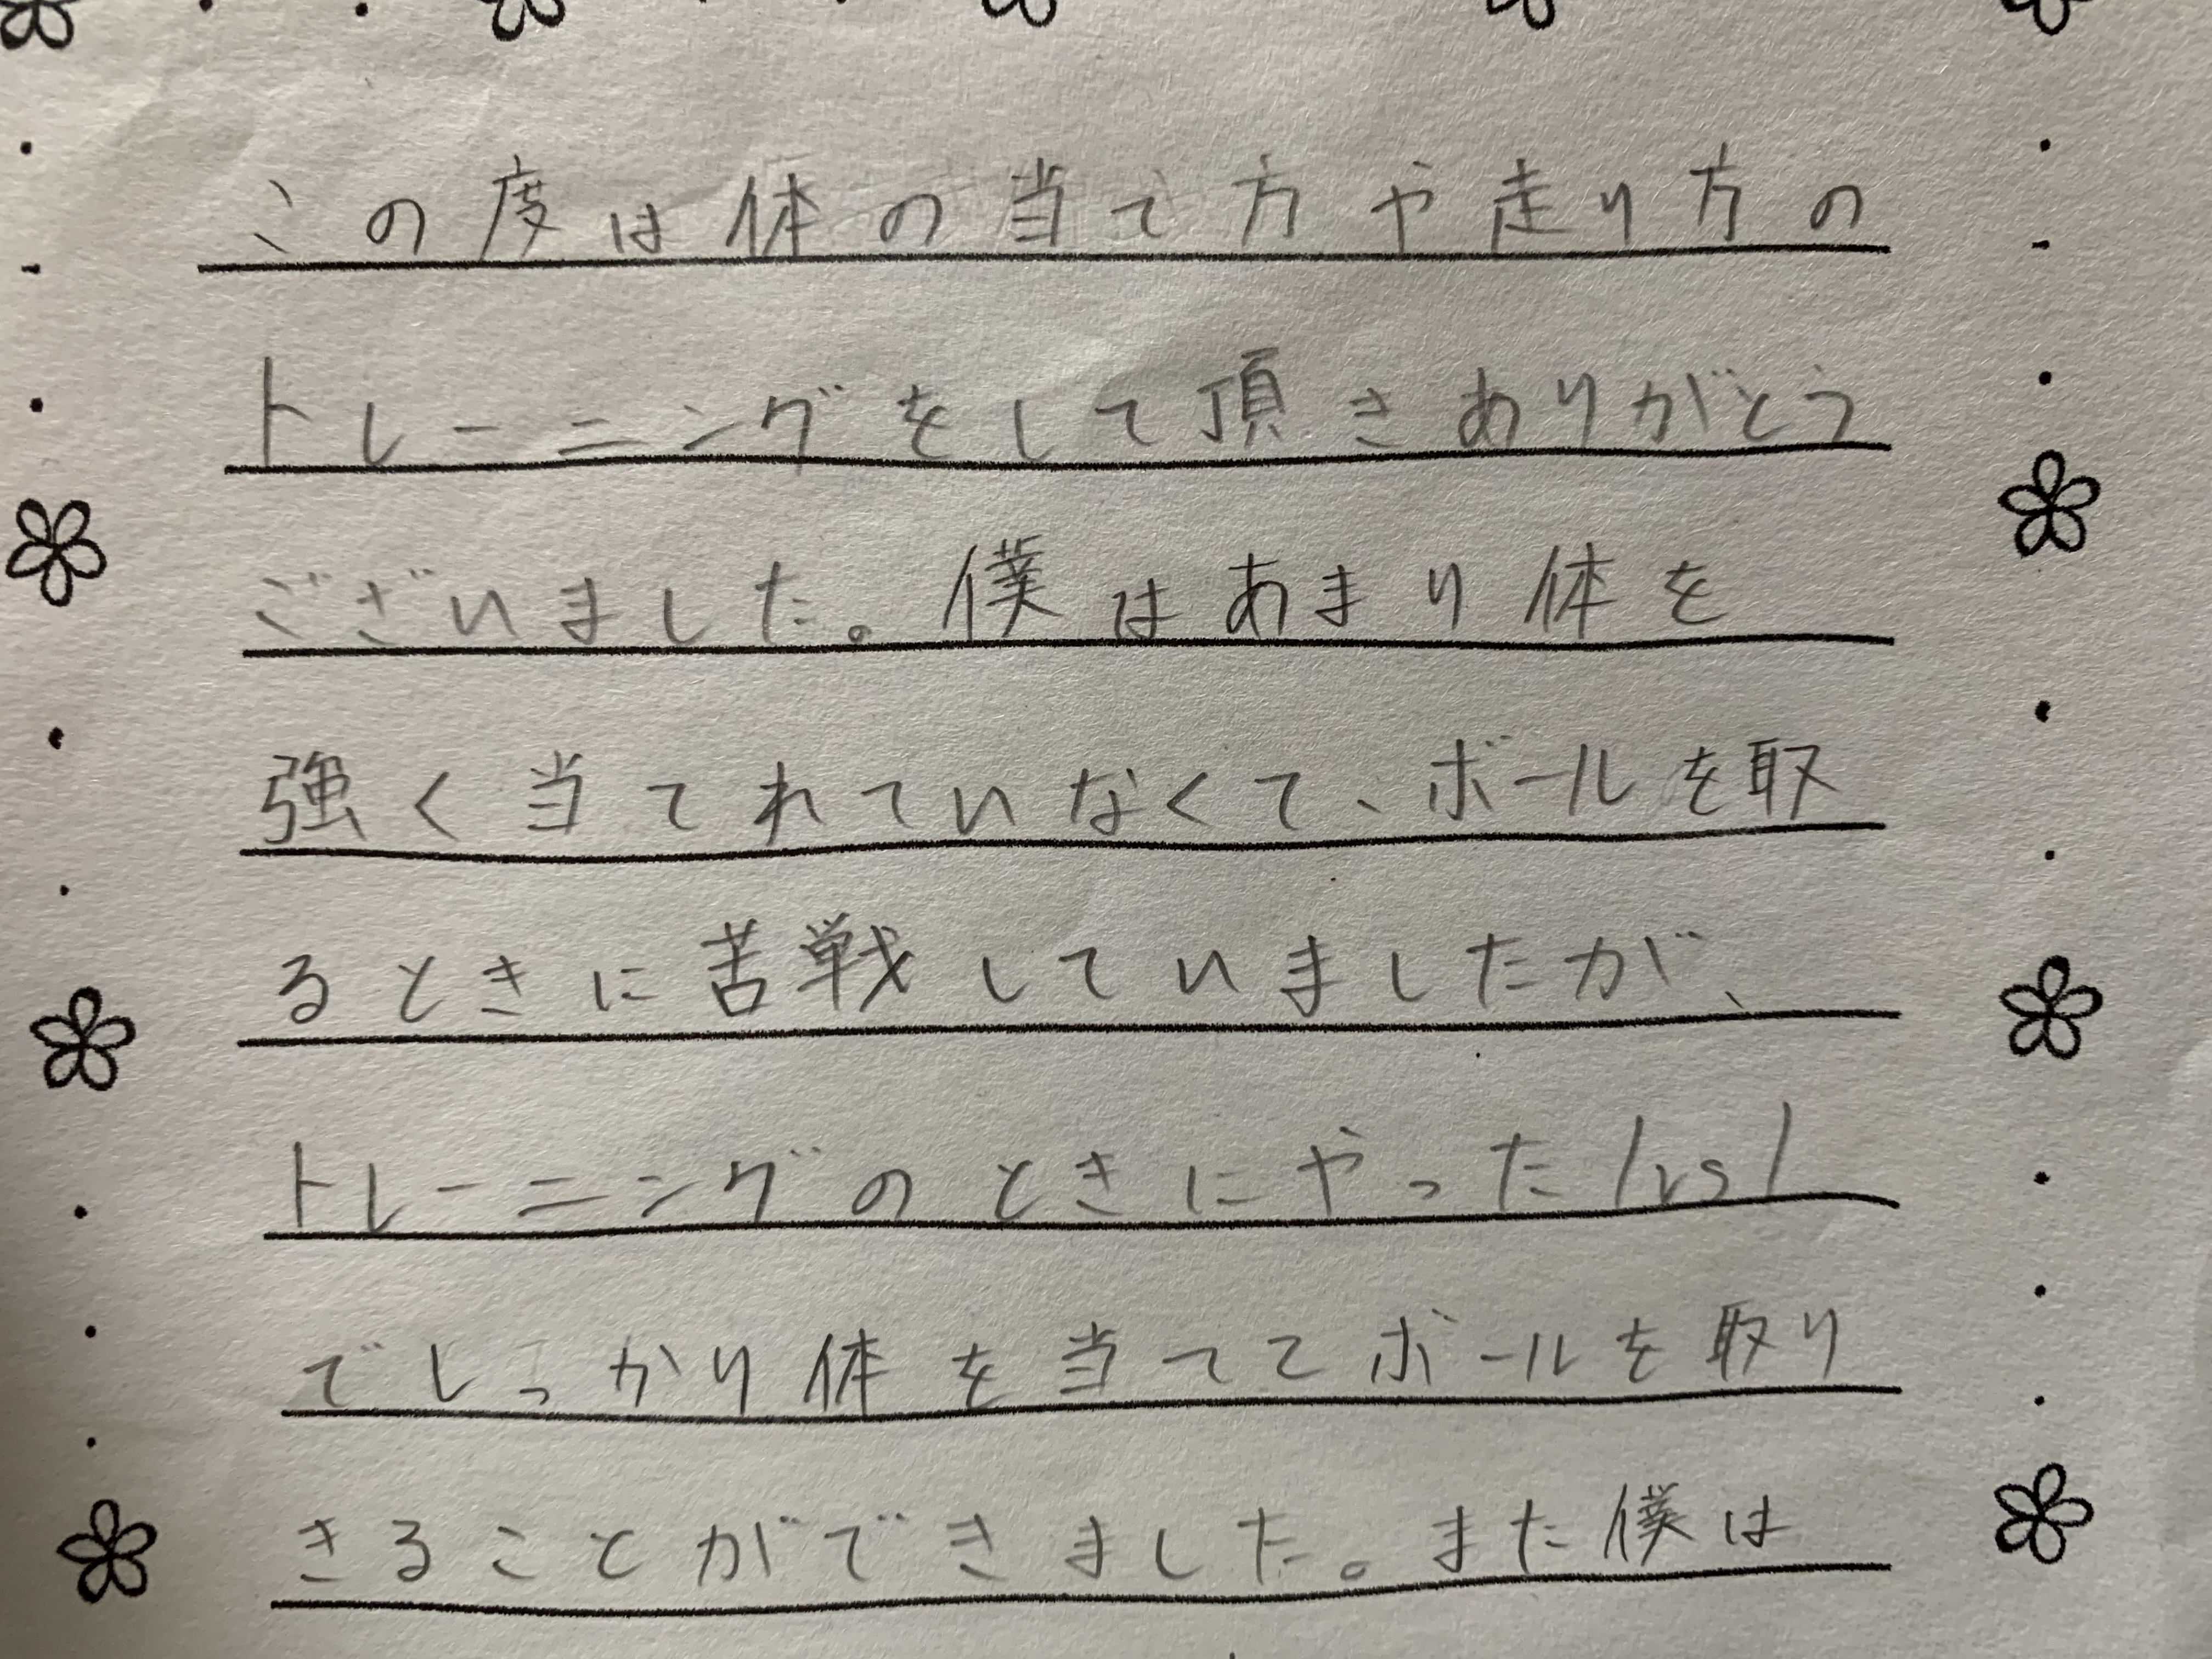 この度は体の当て方や走り方の
トレーニングをして頂きありがとう
ございました。僕はあまり体を
強く当てれていなくて、ボールを取
るときに苦戦していましたが、
トレーニングのときにやった1vs1
でしっかり体を当ててボールを取り
きることができました。また僕は